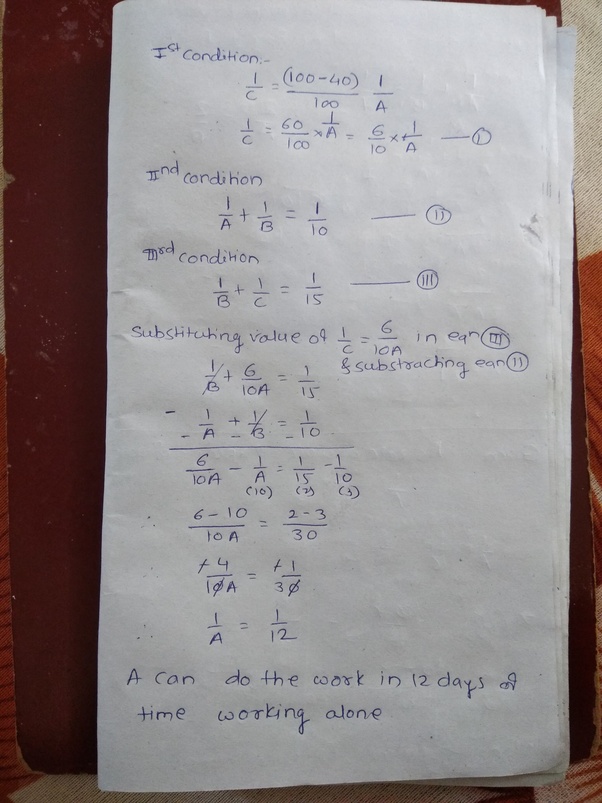 Ist condition:-
1/C = (100-40)/100 1/A
1/C = 60/100 × 1/A = 6/10 × 1/A — (I)
IInd condition
1/A + 1/B = 1/10 — (II)
IIIrd condition
1/B + 1/C = 1/15 — (III)
Substituting value of 1/C = 6/10A in eqn (III)
& substracting eqn (II)
1/B + 6/10A = 1/15
- 1/A + 1/B = 1/10
- - -
6/10A - 1/A = 1/15 - 1/10
(10) (2) (3)
∴ 6-10/10A = 2-3/30
-4/10A = -1/30
∴ 1/A = 1/12
A can do the work in 12 days of
time working alone